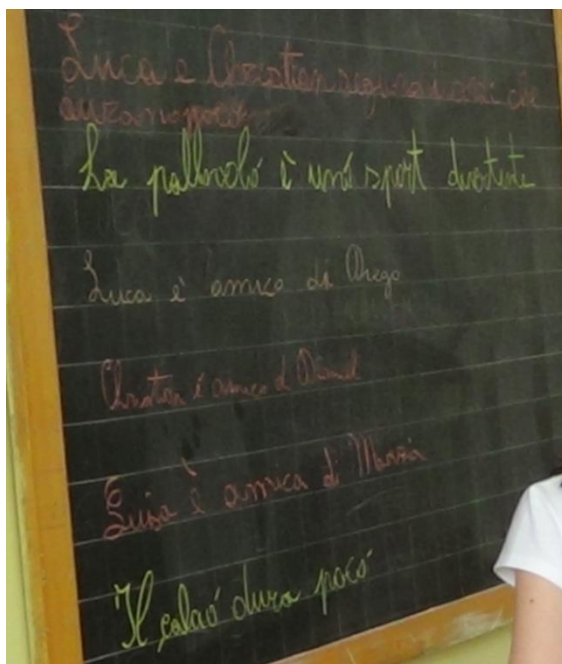 Luca e Christian
La pallavoló è unó sport divertente
Luca è amico di Diego
Christian è amico di Daniel
Luisa è amica di Marzia
Il dura pocó